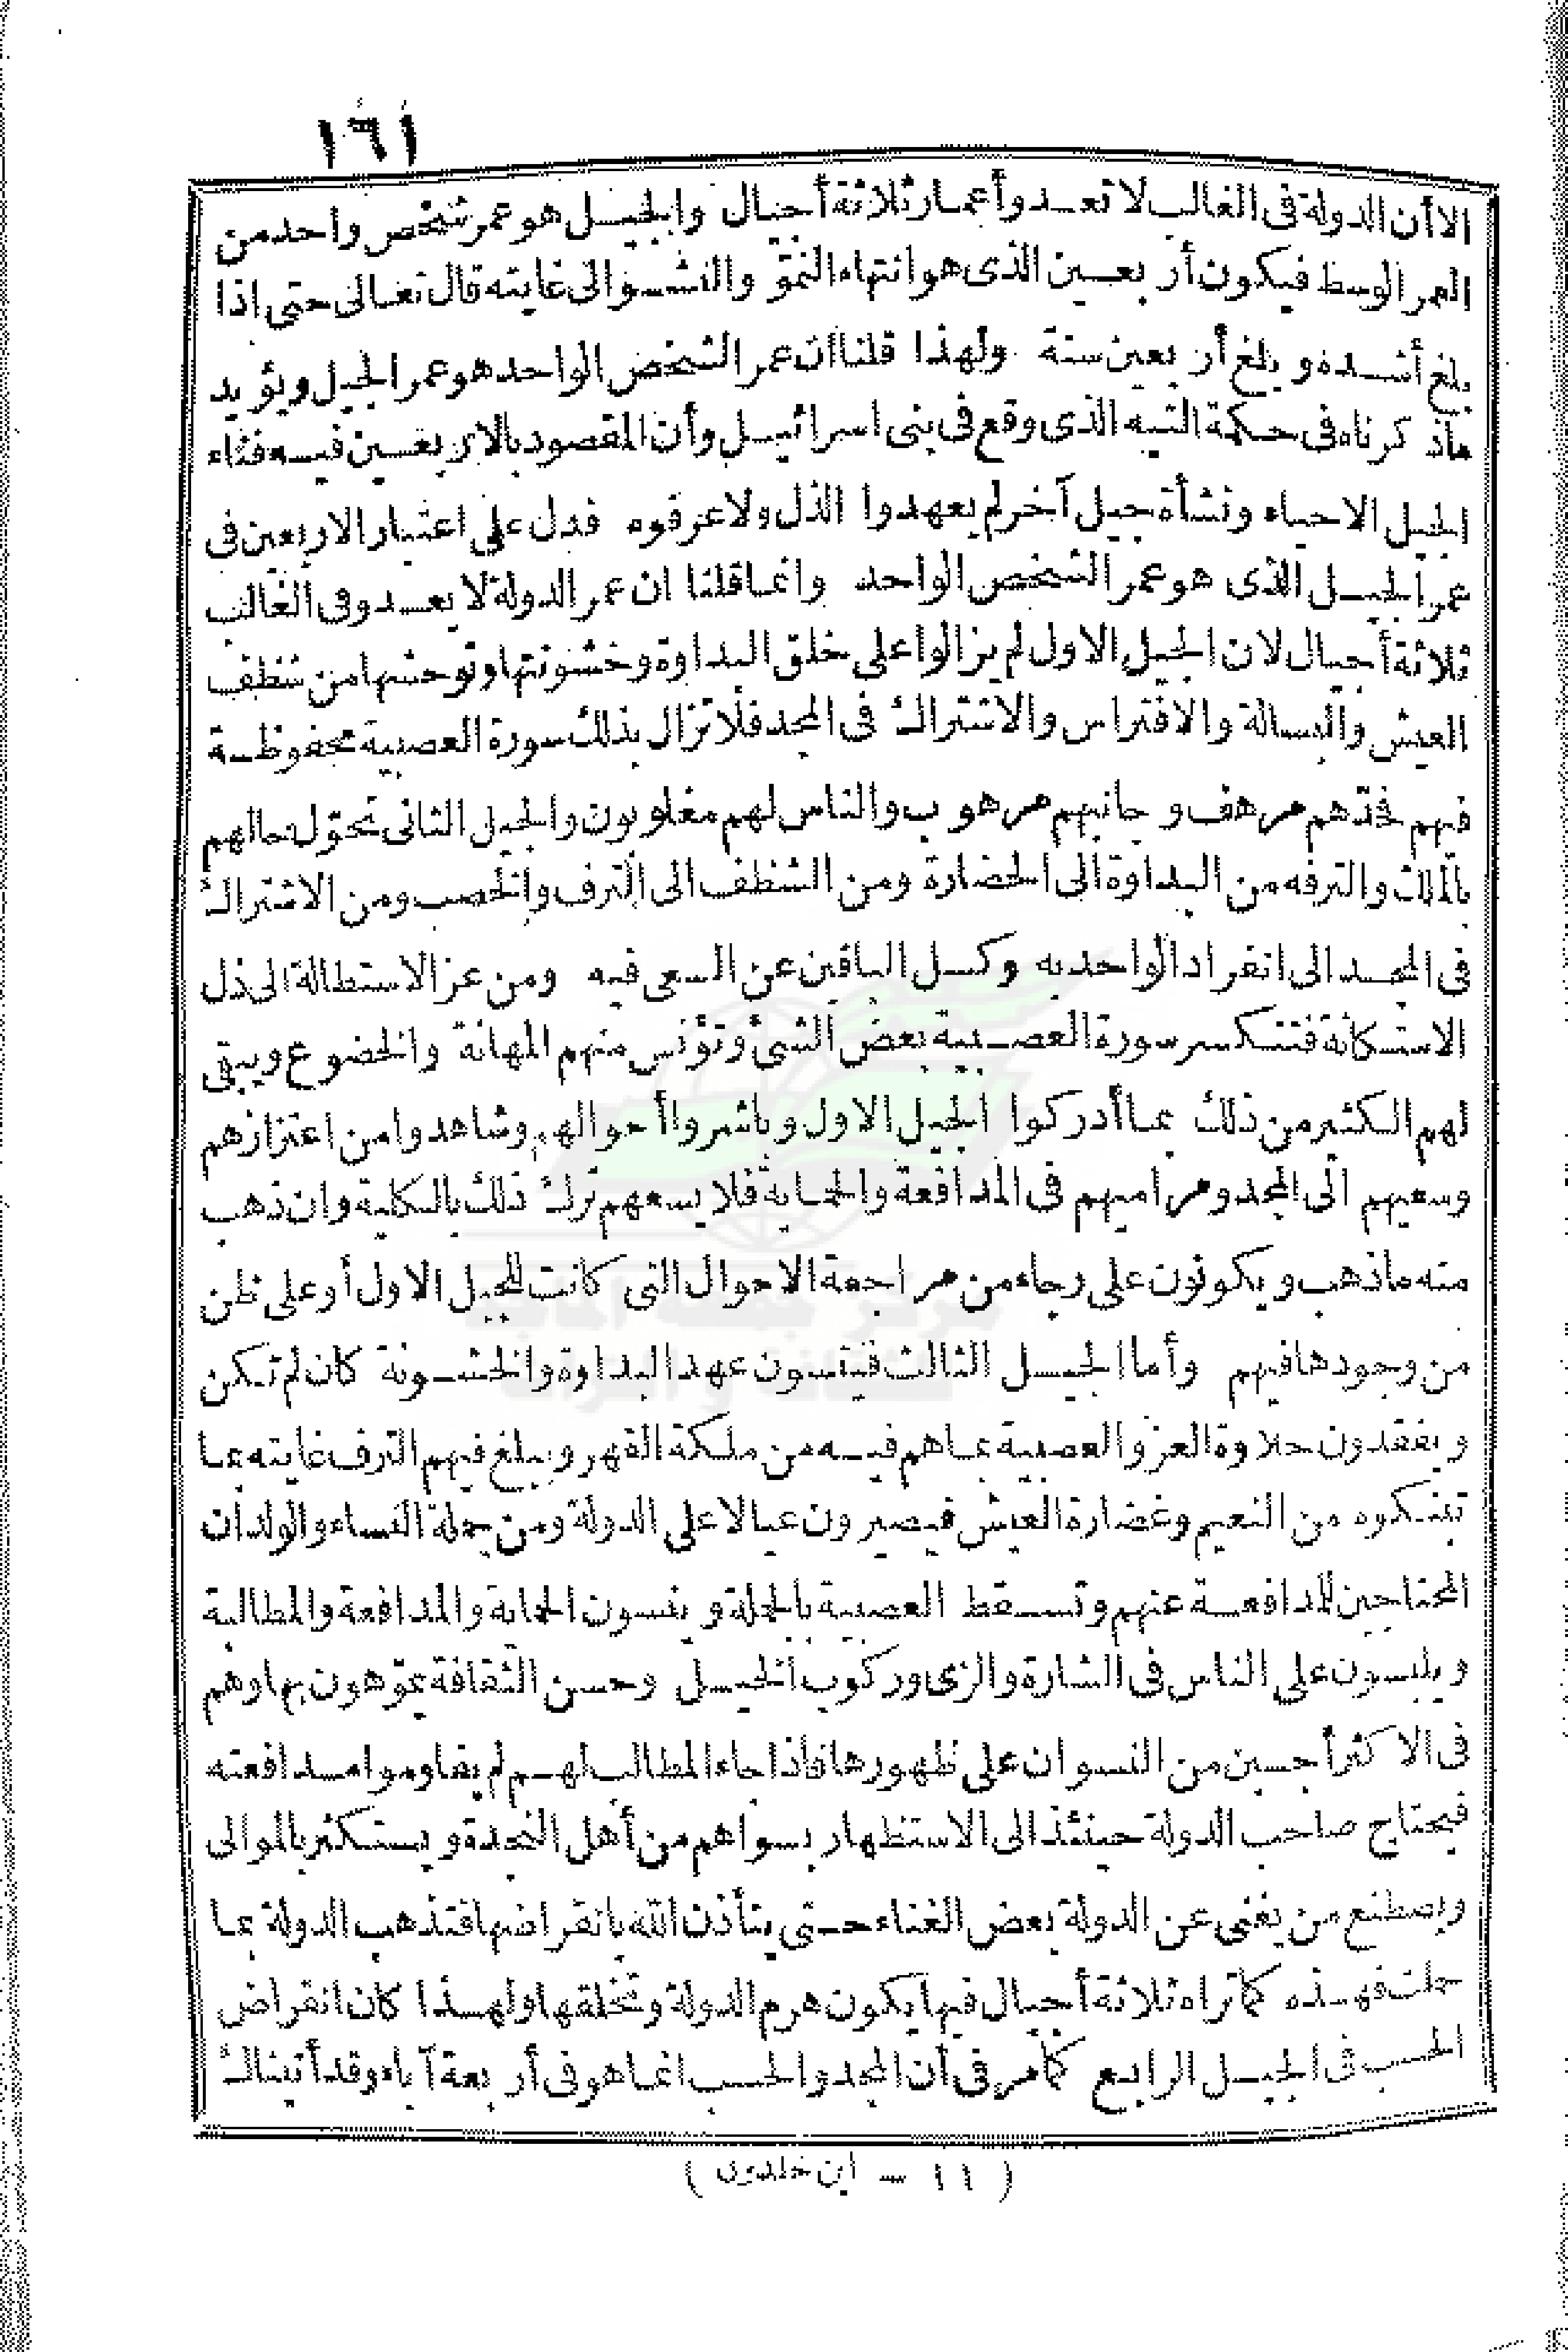 ١٦١
الا أن الدولة فى الغالب لا تعدو أعمار ثلاثة أجيال والجيل هو عمر شخص واحد من
العمر الوسط فيكون أربعين الذى هو انتهاء النمو والنشو الى غايته قال تعالى حتى اذا
بلغ أشده وبلغ أربعين سنة ولهذا قلنا ان عمر الشخص الواحد هو عمر الجيل ويؤيد
ماذكرناه فى حكمة التيه الذى وقع فى بنى اسرائيل وأن المقصود بالاربعين فيه فناء
الجيل الاحياء ونشأة جيل آخر لم يعهدوا الذل ولا عرفوه فدل على اعتبار الاربعين فى
عمر الجيل الذى هو عمر الشخص الواحد وانما قلنا ان عمر الدولة لا يعدو فى الغالب
ثلاثة أجيال لان الجيل الاول لم يزالوا على خلق البداوة وخشونتها وتوحشها من شظف
العيش والبسالة والافتراس والاشتراك فى المجد فلا تزال بذلك سورة العصبية محفوظة
فيهم فحدّهم مرهف وجانبهم مرهوب والناس لهم مغلوبون والجيل الثانى تحوّل حالهم
بالملك والترفه من البداوة الى الحضارة ومن الشظف الى الترف والخصب ومن الاشتراك
فى المجد الى انفراد الواحد به وكسل الباقين عن السعى فيه ومن عز الاستطالة الى ذل
الاستكانة فتنكسر سورة العصبية بعض الشئ وتؤنس منهم المهانة والخضوع ويبقى
لهم الكثير من ذلك بما أدركوا الجيل الاول وباشروا أحوالهم وشاهدوا من اعتزازهم
وسعيهم الى المجد ومراميهم فى المدافعة والحماية فلا يسعهم ترك ذلك بالكلية وان ذهب
منه ماذهب ويكونون على رجاء من مراجعة الاحوال التى كانت للجيل الاول أو على ظن
من وجودها فيهم وأما الجيل الثالث فينسون عهد البداوة والخشونة كان لم تكن
ويفقدون حلاوة العز والعصبية بما هم فيه من ملكة القهر ويبلغ فيهم الترف غايته بما
تبنكوه من النعيم وغضارة العيش فيصيرون عيالا على الدولة ومن جملة النساء والولدان
المحتاجين للمدافعة عنهم وتسقط العصبية بالجملة وينسون الحماية والمدافعة والمطالبة
ويلبسون على الناس فى الشارة والزى وركوب الخيل وحسن الثقافة يموّهون بها وهم
فى الاكثر أجبن من النسوان على ظهورها فاذا جاء المطالب لهم لم يقاوموا مدافعته
فيحتاج صاحب الدولة حينئذ الى الاستظهار بسواهم من أهل النجدة ويستكثر بالموالى
ويصطنع من يغنى عن الدولة بعض الغناء حتى يتأذن الله بانقراضها فتذهب الدولة بما
حملت فهذه كما تراه ثلاثة أجيال فيها يكون هرم الدولة وتخلقها ولهذا كان انقراض
الحسب فى الجيل الرابع كما مر فى أن المجد والحسب انما هو فى أربعة آباء وقد أتيناك
( ١١ – ابن خلدون )
مركز جمعة الماجد
للثقافة والتراث